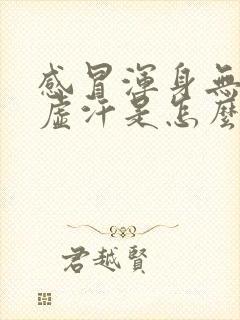 感冒渾身無
虛汗是怎麼
君越賢